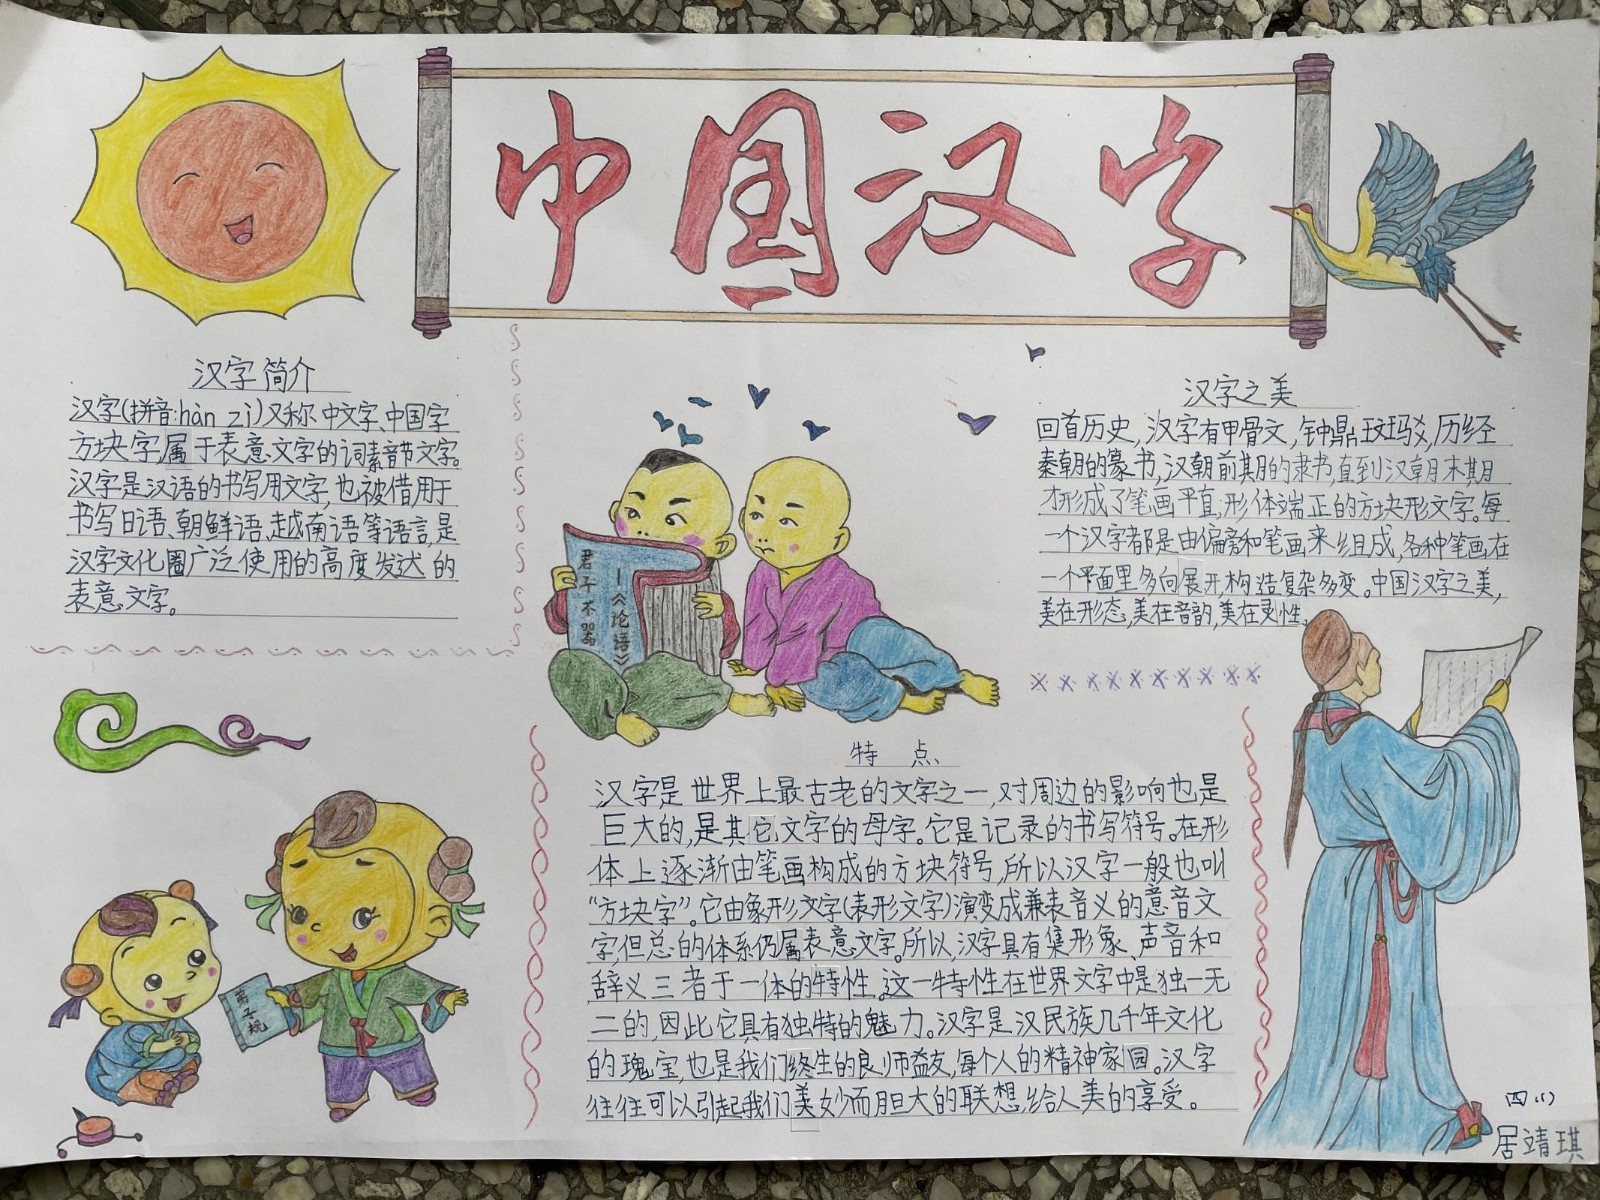 中国汉字
汉字简介
汉字(拼音:hàn zì)又称中文字、中国字
方块字属于表意文字的词素音节文字。
汉字是汉语的书写用文字,也被借用于
书写日语、朝鲜语、越南语等语言,是
汉字文化圈广泛使用的高度发达的
表意文字。
君子不器
—《论语》
汉字之美
回首历史,汉字有甲骨文,钟鼎玟玛,历经
秦朝的篆书,汉朝前期的隶书,直到汉朝末期
才形成了笔画平直,形体端正的方块形文字。每
一个汉字都是由偏旁和笔画来组成,各种笔画在
一个平面里多向展开,构造复杂多变。中国汉字之美,
美在形态,美在音韵,美在灵性。
特点
汉字是世界上最古老的文字之一,对周边的影响也是
巨大的,是其它文字的母字。它是记录的书写符号。在形
体上逐渐由笔画构成的方块符号,所以汉字一般也叫
“方块字”。它由象形文字(表形文字)演变成兼表音义的意音文
字,但总的体系仍属表意文字。所以,汉字具有集形象、声音和
辞义三者于一体的特性。这一特性在世界文字中是独一无
二的,因此它具有独特的魅力。汉字是汉民族几千年文化
的瑰宝,也是我们终生的良师益友,每个人的精神家园。汉字
往往可以引起我们美妙而胆大的联想,给人美的享受。
弟子规
四(1)
居靖琪